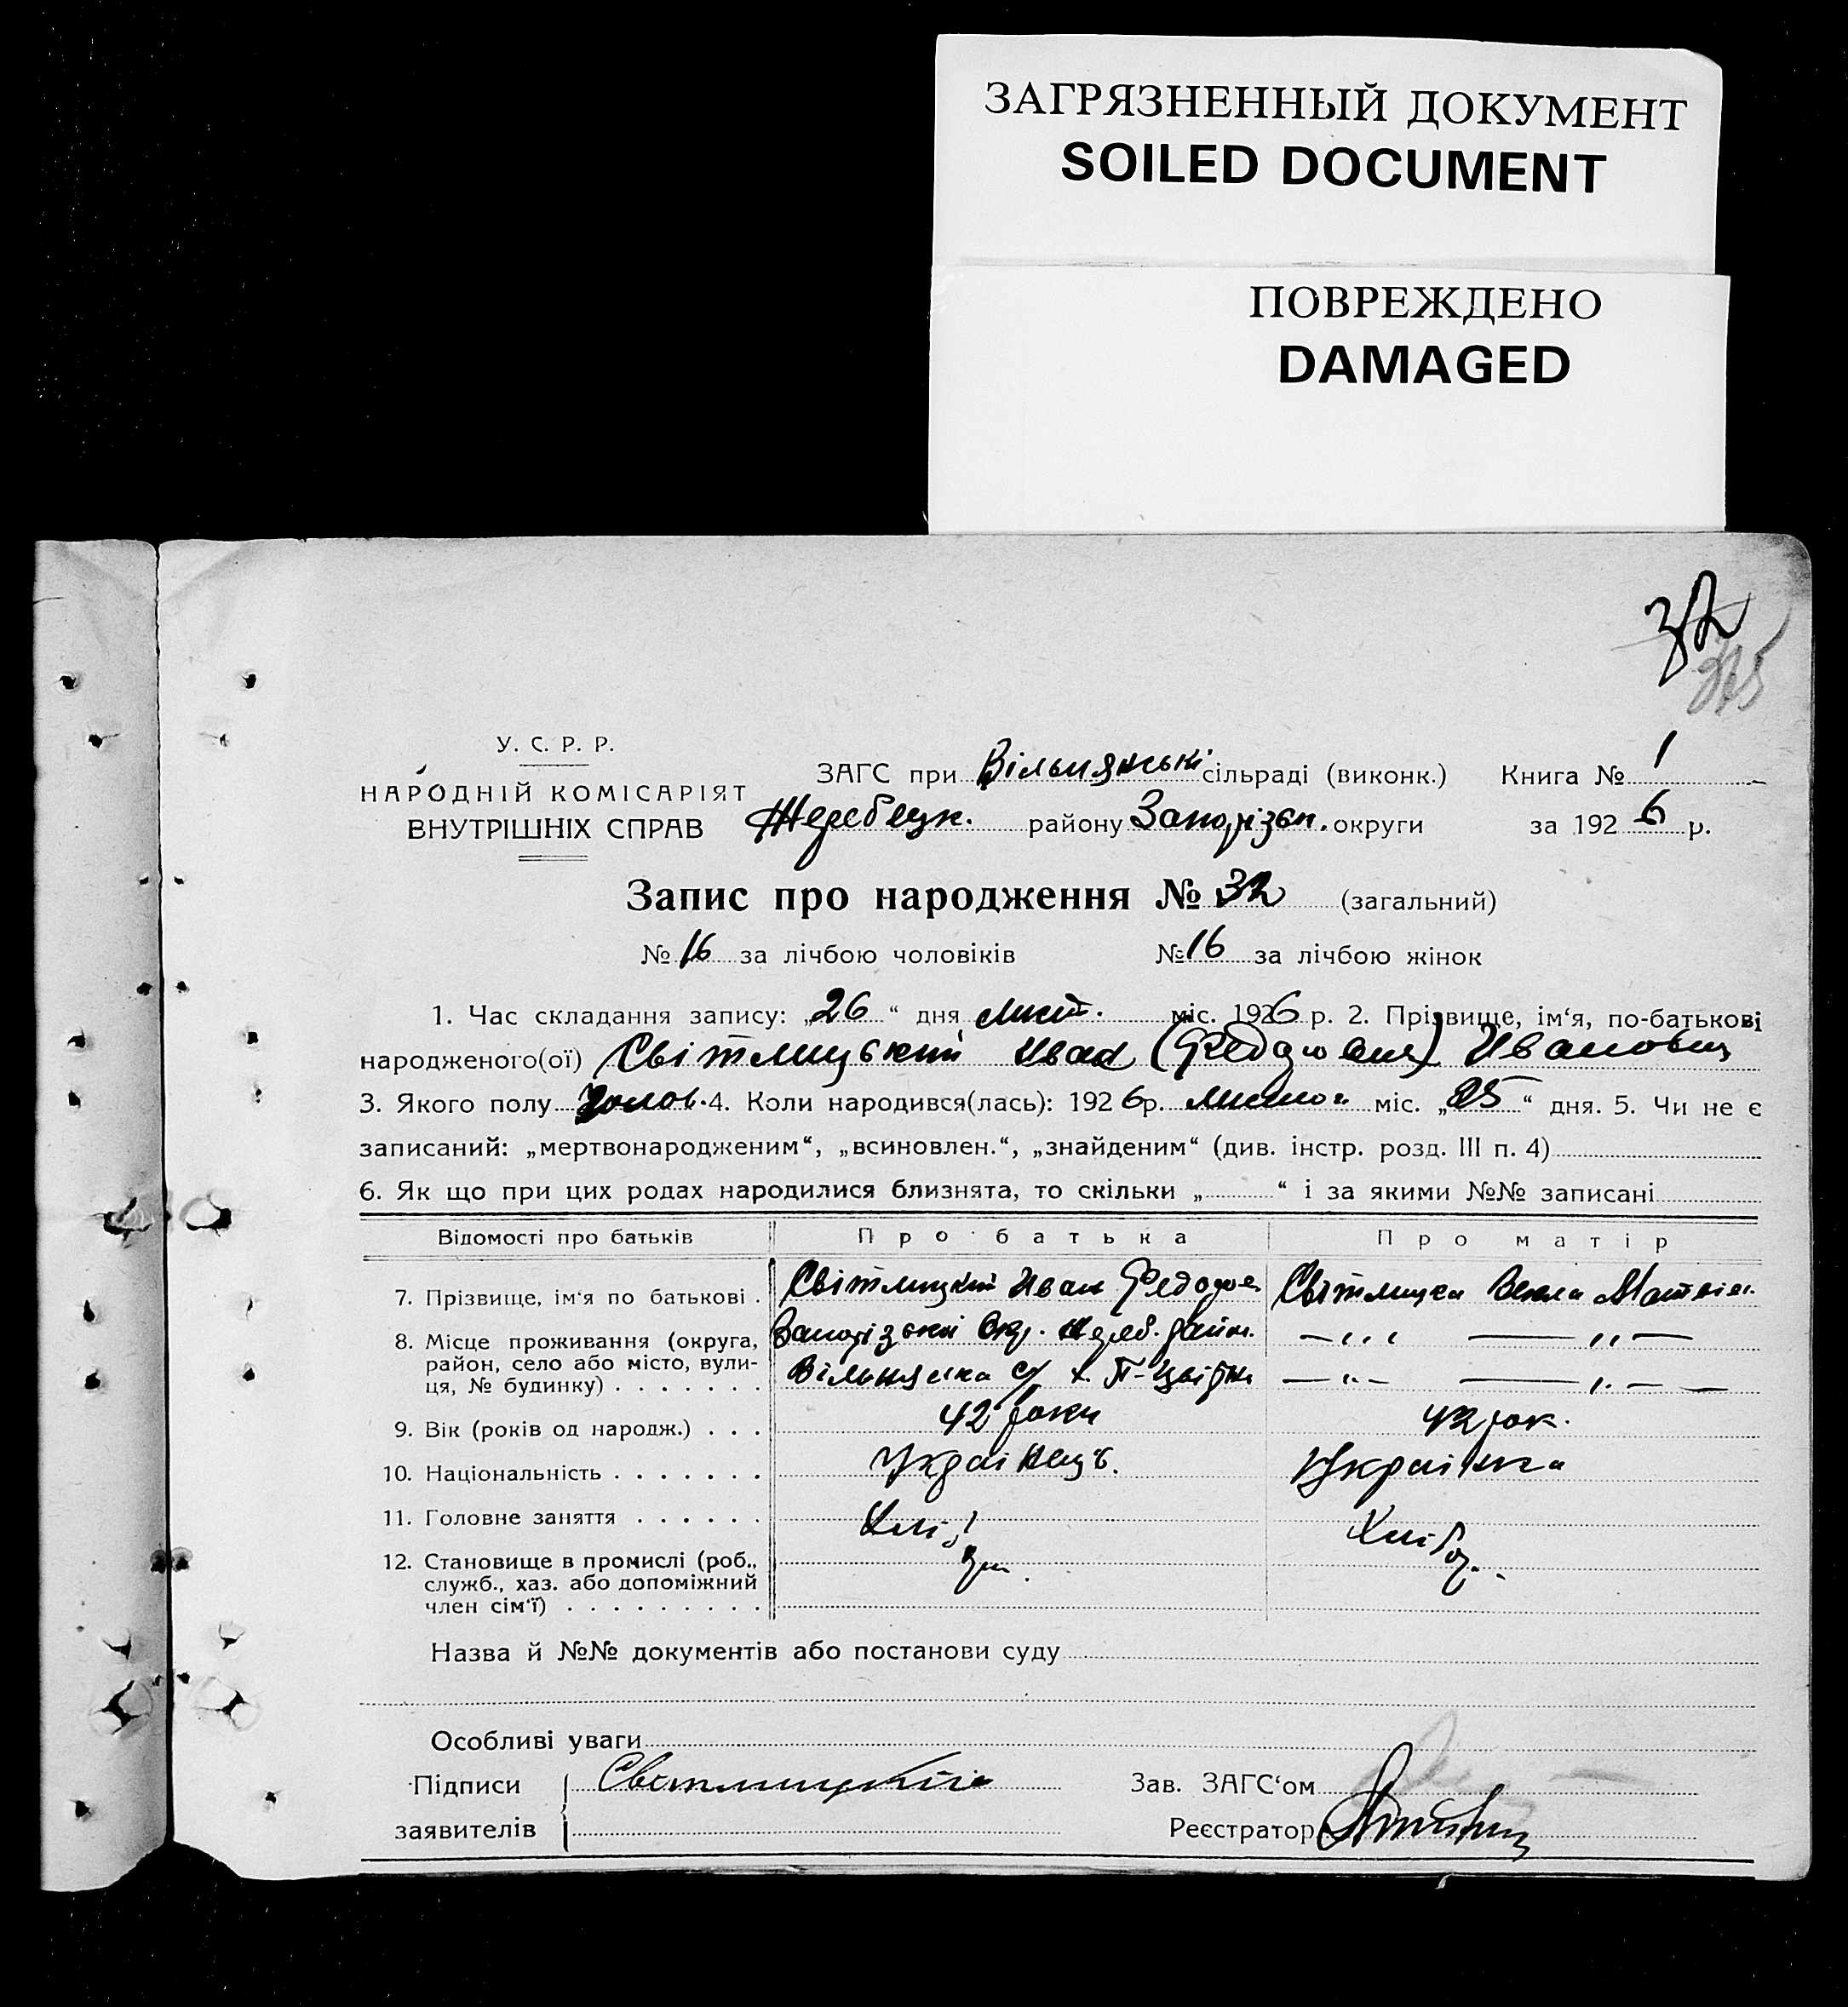 ЗАГРЯЗНЕННЫЙ ДОКУМЕНТ
SOILED DOCUMENT
ПОВРЕЖДЕНО
DAMAGED
32
У. С. Р. Р.
НАРОДНІЙ КОМІСАРІЯТ
ВНУТРІШНІХ СПРАВ
ЗАГС при Вільнянські сільраді (виконк.) Книга № 1
Жеребецк. району Запорізьк. округи за 1926 р.
Запис про народження № 32 (загальний)
№ 16 за лічбою чоловіків № 16 за лічбою жінок
1. Час складання запису: „26“ дня лист. міс. 1926 р. 2. Прізвище, ім‘я, по-батькові
народженого(ої) Світлицький Иван Иванович
3. Якого полу чолов. 4. Коли народився(лась): 1926 р. листоп міс. „25“ дня. 5. Чи не є
записаний: „мертвонародженим“, „всиновлен.“, „знайденим“ (див. інстр. розд. III п. 4)
6. Як що при цих родах народилися близнята, то скільки „ “ і за якими №№ записані
Відомості про батьків Про батька Про матір
7. Прізвище, ім‘я по батькові . Світлицкий Иван Федодов. Світлицка Векла Матвіев.
8. Місце проживання (округа, район, село або місто, вулиця, № будинку) . . . . . . . Запорізької Окр. Жереб. район.
Вільнянска с/ х. —„— —„—
9. Вік (років од народж.) . . . 42 роки 42 рок.
10. Національність . . . . . . . Українець. Українка
11. Головне заняття . . . . . . Хліб Хліб
12. Становище в промислі (роб., служб., хаз. або допоміжний член сім‘ї) . . . . . . . . .
Назва й №№ документів або постанови суду
Особливі уваги
Підписи Світлицкий Зав. ЗАГС‘ом
заявителів Реєстратор